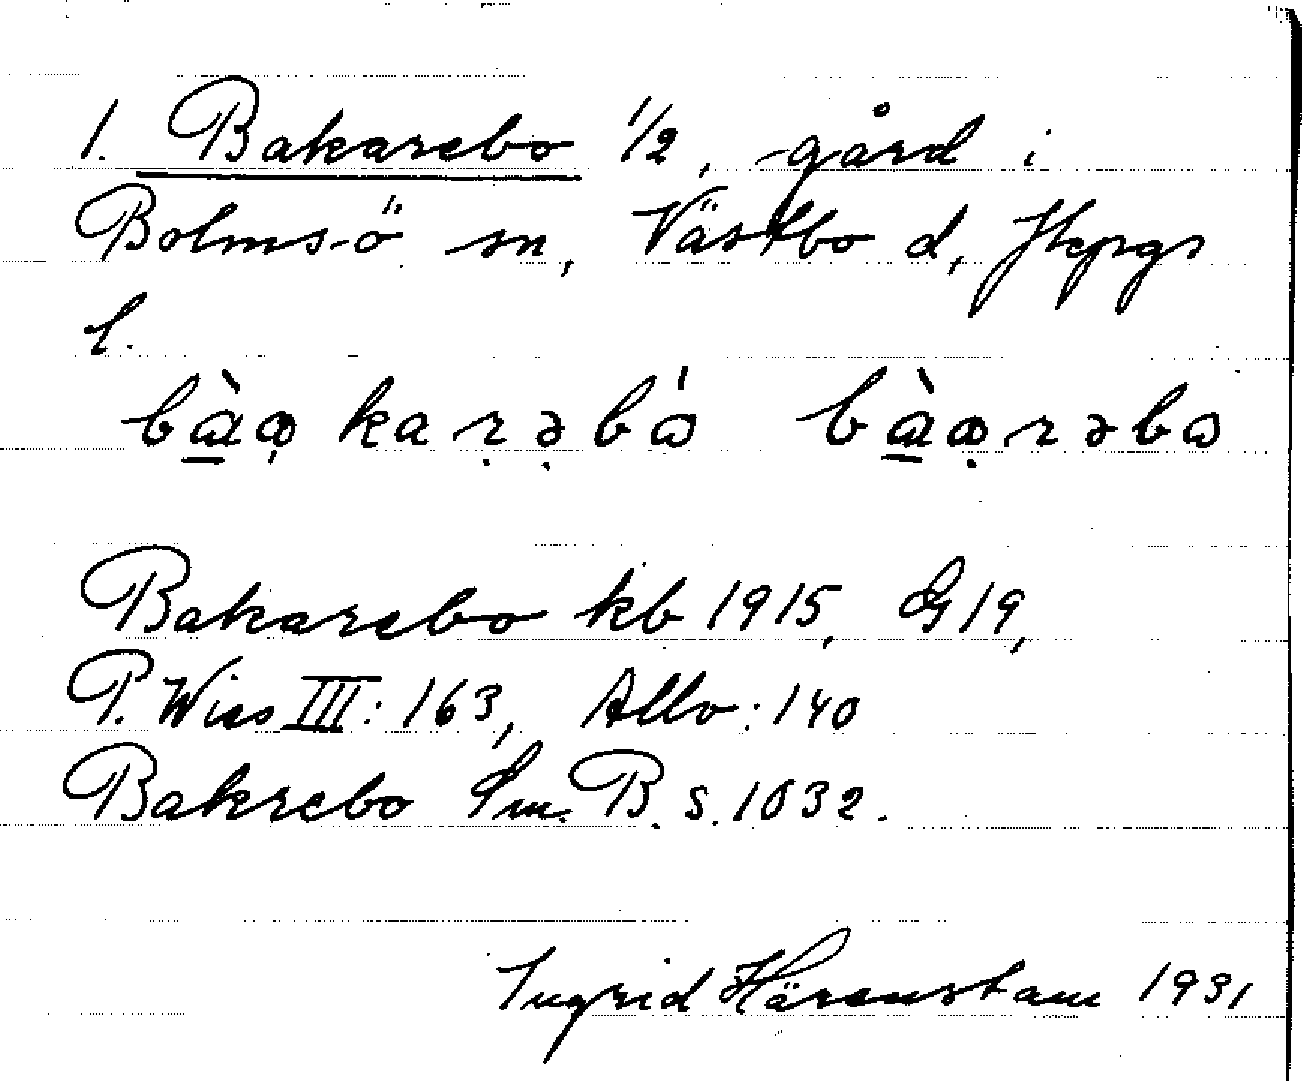 1. Bakarebo 1/2, gård i
Bolmsö sn, Västbo d, Jkpgs
l.
Bakarebo kb 1915, G 19,
P. Wies III: 163, Allv: 140
Bakrebo Sm. B. s. 1032.
Ingrid Härenstam 1931